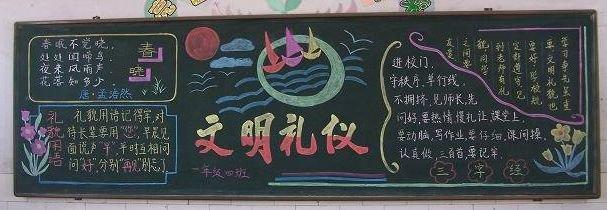 春眠不觉晓,
处处闻啼鸟
夜来风雨声
花落知多少
春晓
唐·孟浩然
礼貌用语
礼貌用语记得牢,对
待长辈要用"您",早晨见
面说声"早",平时互相问
问"好",分别"再见"别忘了
文明礼仪
一年级四班
进校门,
守秩序,单行线,
不拥挤,见师长,先
问好,要热情,懂礼让,课堂上,
要动脑,写作业,要仔细,课间操,
认真做,三首歌,要记牢.
三字经
要文明礼貌也
友爱